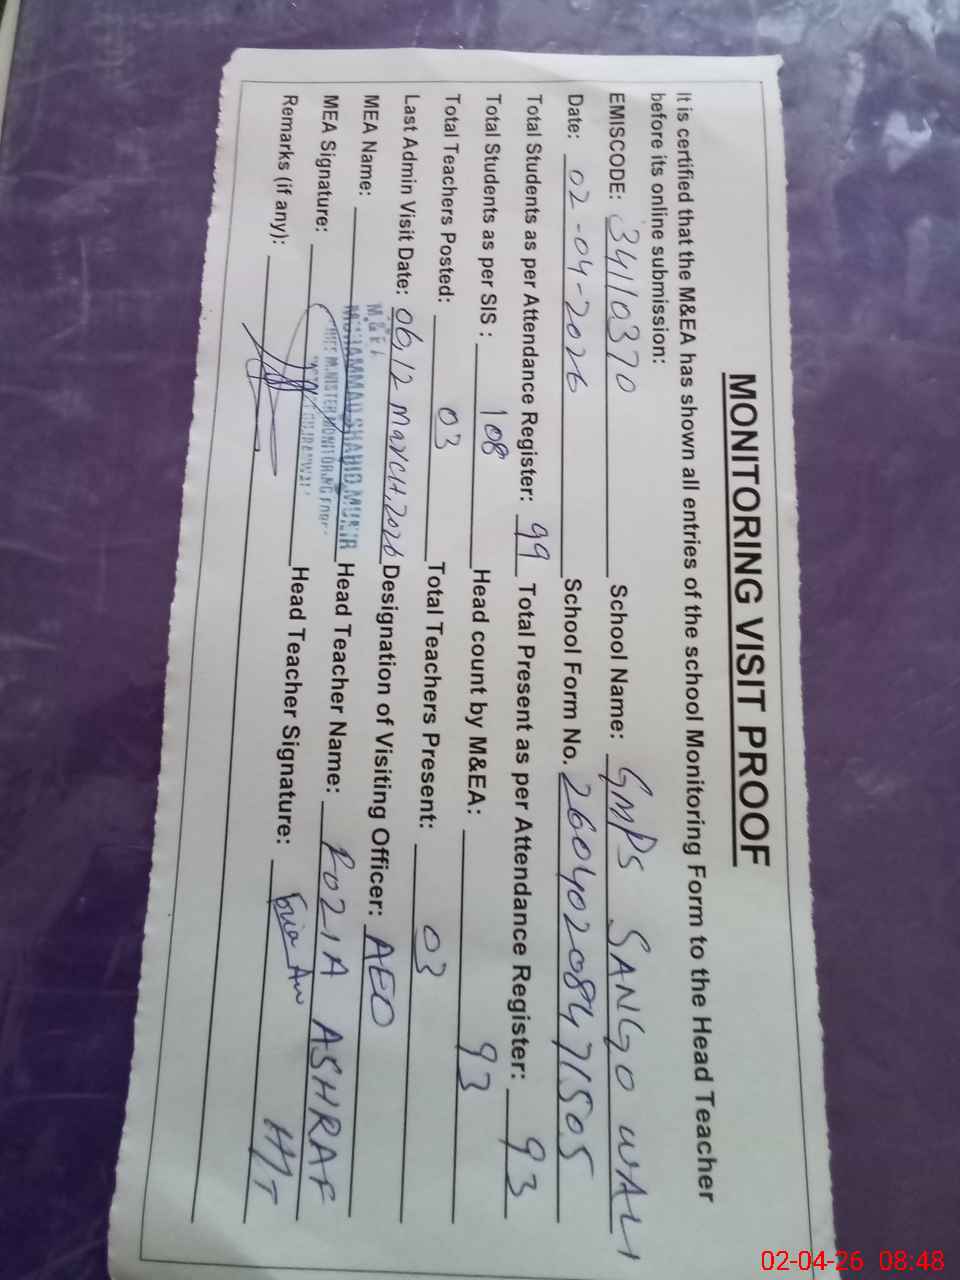 MONITORING VISIT PROOF
It is certified that the M&EA has shown all entries of the school Monitoring Form to the Head Teacher
before its online submission:
EMISCODE: 34110370 School Name: GMPS SANGO WALI
Date: 02-04-2026 School Form No. 26040208471505
Total Students as per Attendance Register: 99 Total Present as per Attendance Register: 93
Total Students as per SIS : 108 Head count by M&EA: 93
Total Teachers Posted: 03 Total Teachers Present: 03
Last Admin Visit Date: 06,12 March,2026 Designation of Visiting Officer: AEO
MEA Name: MUHAMMAD SHAHID MUNIR Head Teacher Name: ROZIA ASHRAF
MEA Signature: MINISTER MONITORING Head Teacher Signature: HT
Remarks (if any):
02-04-26 08:48